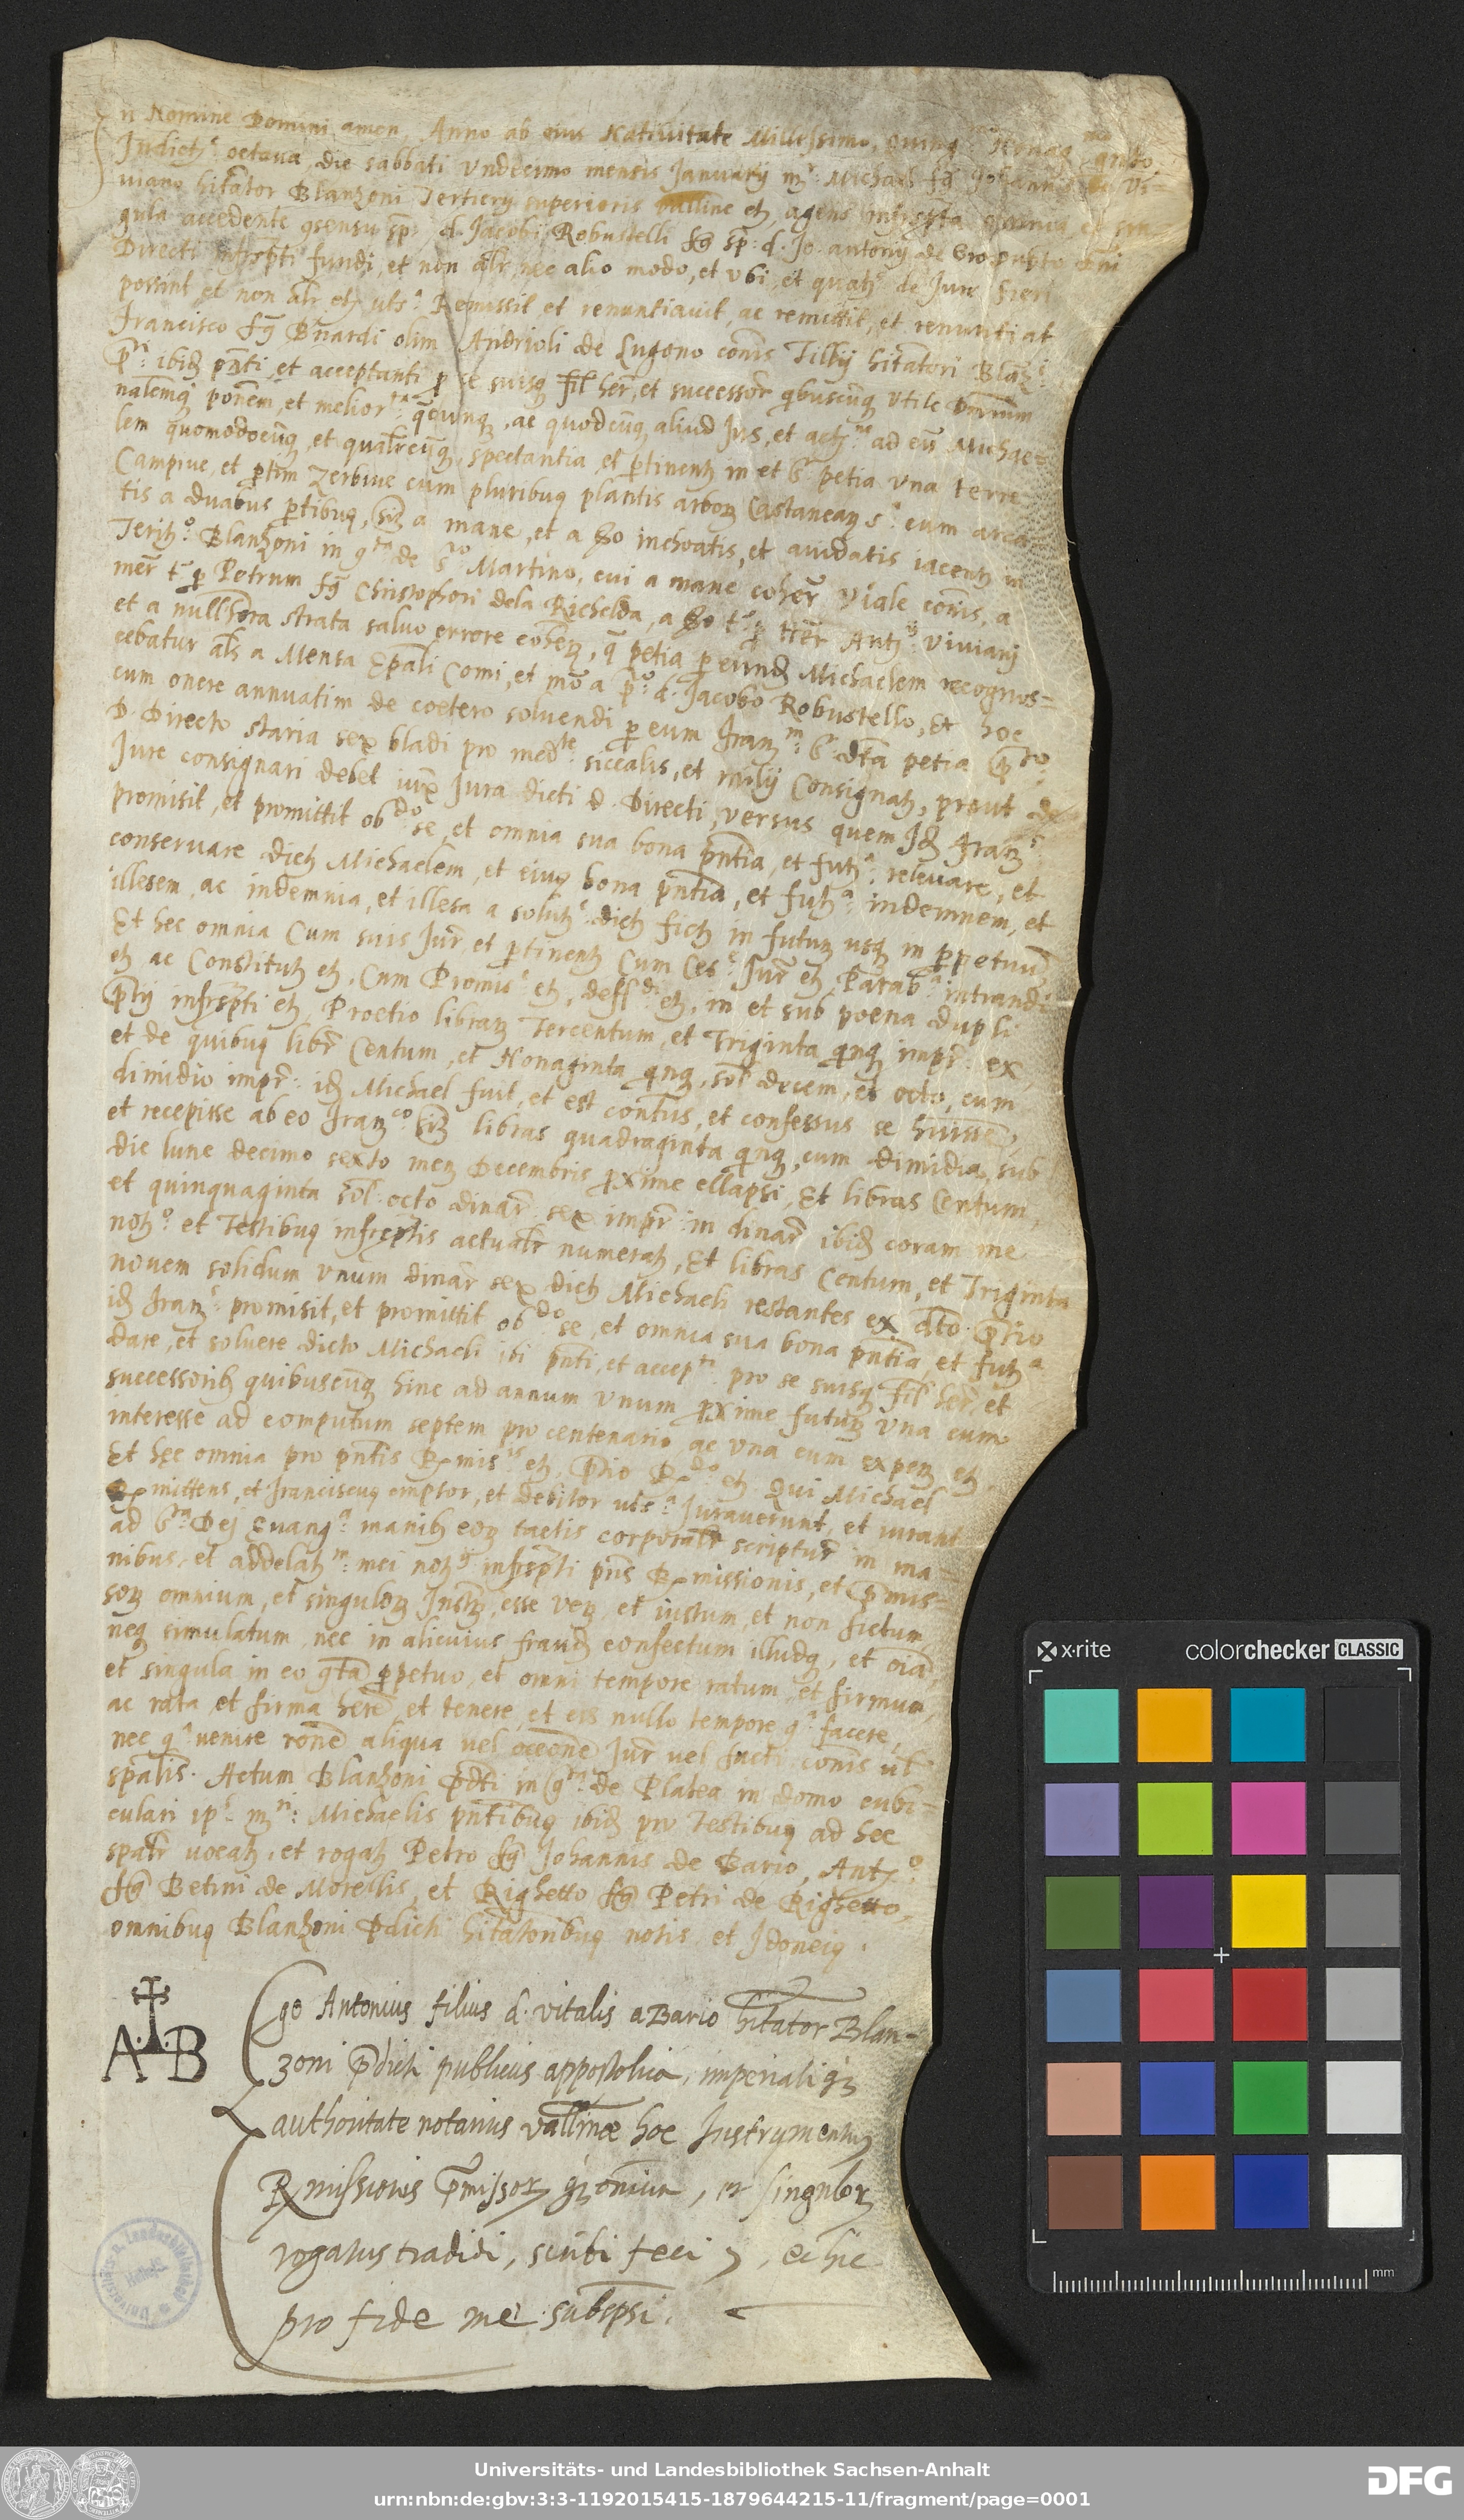 n Nomine Domini amen, Anno ab eius Natiuitate Millessimo, quing.
Indictᵉ octaua, die sabbati Undecimo mensis Januarij mʳ: Michael fq̃ Johannis de Vi-
uiano hitãtor Blanzoni Tertierij superioris Valline etz agens infrascta omnia et sin
gula accedente ɔsensu sp: d. Jacobi Robustelli fq̃ sp: d. Jo: antonij de Grosupto dñi
Directi infrascpti fundi, et non alr, nec alio modo, et Ubi, et quatz de Jure fieri
possint, et non alr etz uts.ᵃ Remissit, et renuntiauit, ac remittit, et renuntiat
Francisco fq̃ Bnardi olim Andrioli de Lugono cõnis Tilij hitãtori Blanzⁱ
pᵗⁱ: ibid pñti, et acceptanti p se suisq fil her, et successor qbuscũq Utile Dminium
nalemq ponem, et meliorᵗᵃ qcunq, ac quodcũq aliud Jus, et actzᵐ ad eũ Michae-
lem quomodocũq, et qualrcũq spectantia et ptinentz in et sᵃ petia una terre
Campiue, et ptim Zerbiue cum pluribus plantis arborz Castanearz sᵃ: cum area
tis a duabus ptibus, siz a mane, et a so inchoatis, et aiudatis iacentz in
Teritᵒ: Blanzoni in ɔᵗᵃ de Sᵗᵒ Martino, cui a mane coher Viale cõnis, a
mer t: p Petrum fq̃ Christophori dela Richelda, a so t: p her Antzⁱⁱ Viuianj
et a nullhora strata saluo errore coherz, q petia p eundz Michaelem recognos-
cebatur als a Mensa Epali Comi, et mõ a pᵗᵒ: d. Jacobo Robustello, Et hoc
cum onere annuatim de coetero soluendi p eum Franᵐ: sᵃ dta petia pᵗᵒ:
D. Directo staria sex bladi pro medᵗᵉ: siccalis, et milij Consignatz, prout de
Jure consignari debet iux Jura dicti D. Directi, versus quem Idz Franzˢ:
promisit, et promittit obᵈᵒ se, et omnia sua bona pñtia, et futzᵃ: releuare, et
conseruare dictz Michaelem, et eius bona pñtia, et futzᵃ: indemnem, et
illesem, ac indemnia, et illesa a solutzᵉ dictz fictz in futurz usq in ppetuũ
Et hec omnia Cum suis Jur, et ptinentz Cum Cesᵉ: Jur etz, Parabᵃ: intrandi
etz ac Constitutz etz, Cum Promisᵉ: etz, deffᵈⁱ etz, in et sub poena dupli
ptij infrascpti etz, Proetio librarz Tercentum, et Triginta qnq impr: ex
et de quibus libr Centum, et Nonaginta qnq, sol decem, et octo, cum
dimidio impr: idz Michael fuit, et est contẽtus, et confessus se hũisse,
et recepisse ab eo Franzᶜᵒ: siz libras quadraginta qnq, cum dimidia, sub
die lune decimo sexto menz Decembris pxime ellapsi, Et libras Centum,
et quinquaginta sol. octo dinar. sex impr: in dinar ibidz coram me
notzᵒ et Testibus infrascptis actualr numeratz, Et libras Centum, et Triginta
nouem solidum Unum dinar sex dictz Michaeli restantes ex dto ptio
idz Franzˢ: promisit, et promittit obᵈᵒ se, et omnia sua bona pñtia, et futzᵃ
dare, et soluere dicto Michaeli ibi pñti, et accepᵗⁱ: pro se suisq fil her, et
successoribz quibuscũq hinc ad annum Unum pxime futurz Una cum
interesse ad computum septem pro centenario ac Una cum expenz etz
Et hec omnia pro pñtis Rmisⁱˢ etz, Ptio Rᵈᵒ etz Qui Michael
Rmittens, et Franciscus emptor, et debitor uts.ᵃ Jurauerunt, et iurant
ad Sᵗᵃ Dej Euangᵃ manibz eorz tactis corporalr scriptur in ma-
nibus, et addelatzᵐ: mei notzⁱⁱ infrascpti pñs Rmissionis, et pmis-
sorz omnium, et singulorz Instz, esse verz, et iustum, et non fictum,
neq simulatum, nec in alicuius fraudz confectum illudq, et oia,
et singula in eo ɔta ppetuo, et omni tempore ratum, et firmum,
ac rata, et firma here, et tenere, et eis nullo tempore ɔᵃ facere,
nec ɔᵃ uenire rõne aliqua uel occõne Jur uel facti cõnis ul
spalis. Actum Blanzoni pdti in ɔᵗᵃ de Platea in domo cubi-
culari ipˢ mʳⁱ: Michaelis pñtibus ibidz pro Testibus ad hec
spalr uocatz, et rogatz Petro fq̃ Johannis de Bario, Antzᵒ
fq̃ Betini de Morellis, et Righetto fq̃ Petri de Righetto,
omnibus Blanzoni pdicti hitãtoribus notis, et Idoneis.
A B
Ego Antonius filius d. Vitalis a Bario hitãtor Blan-
zoni pdicti publicus appostolica, imperialiqz
authoritate notarius Vallinæ hoc Instrumentum
Rmissionis pmissorz qz omniũ, et singulorz
rogatus tradidi, scribi feci, et hic
pro fide me subscpsi.
x·rite
colorchecker CLASSIC
mm
Universitäts- und Landesbibliothek Sachsen-Anhalt
urn:nbn:de:gbv:3:3-1192015415-1879644215-11/fragment/page=0001
DFG